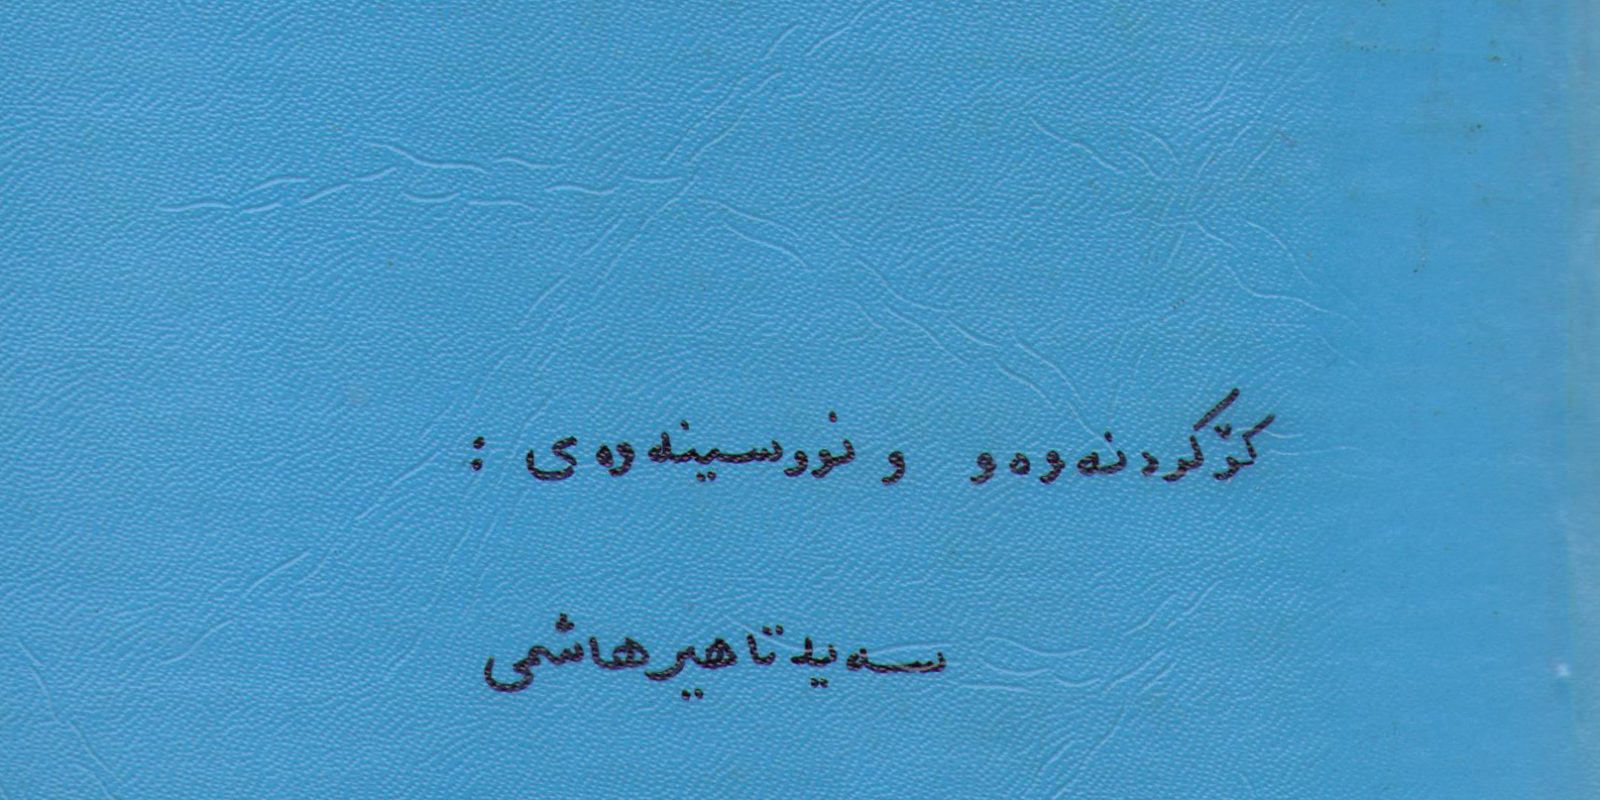 کۆکردنەوەو و نووسینەوەی :
سەید تاهیر هاشمی